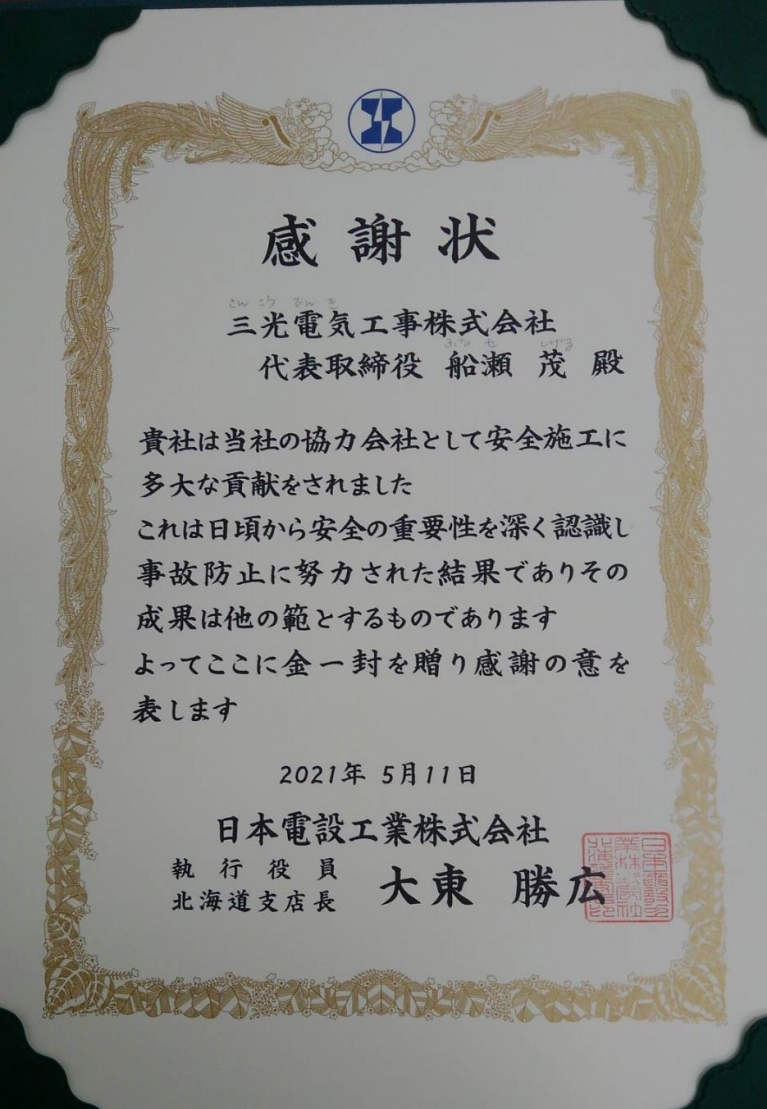 感謝状
さんこう でんき
三光電気工事株式会社
ふなせ しげる
代表取締役 船瀬 茂 殿
貴社は当社の協力会社として安全施工に
多大な貢献をされました
これは日頃から安全の重要性を深く認識し
事故防止に努力された結果でありその
成果は他の範とするものであります
よってここに金一封を贈り感謝の意を
表します
2021年 5月11日
日本電設工業株式会社
執行役員
北海道支店長 大東 勝広